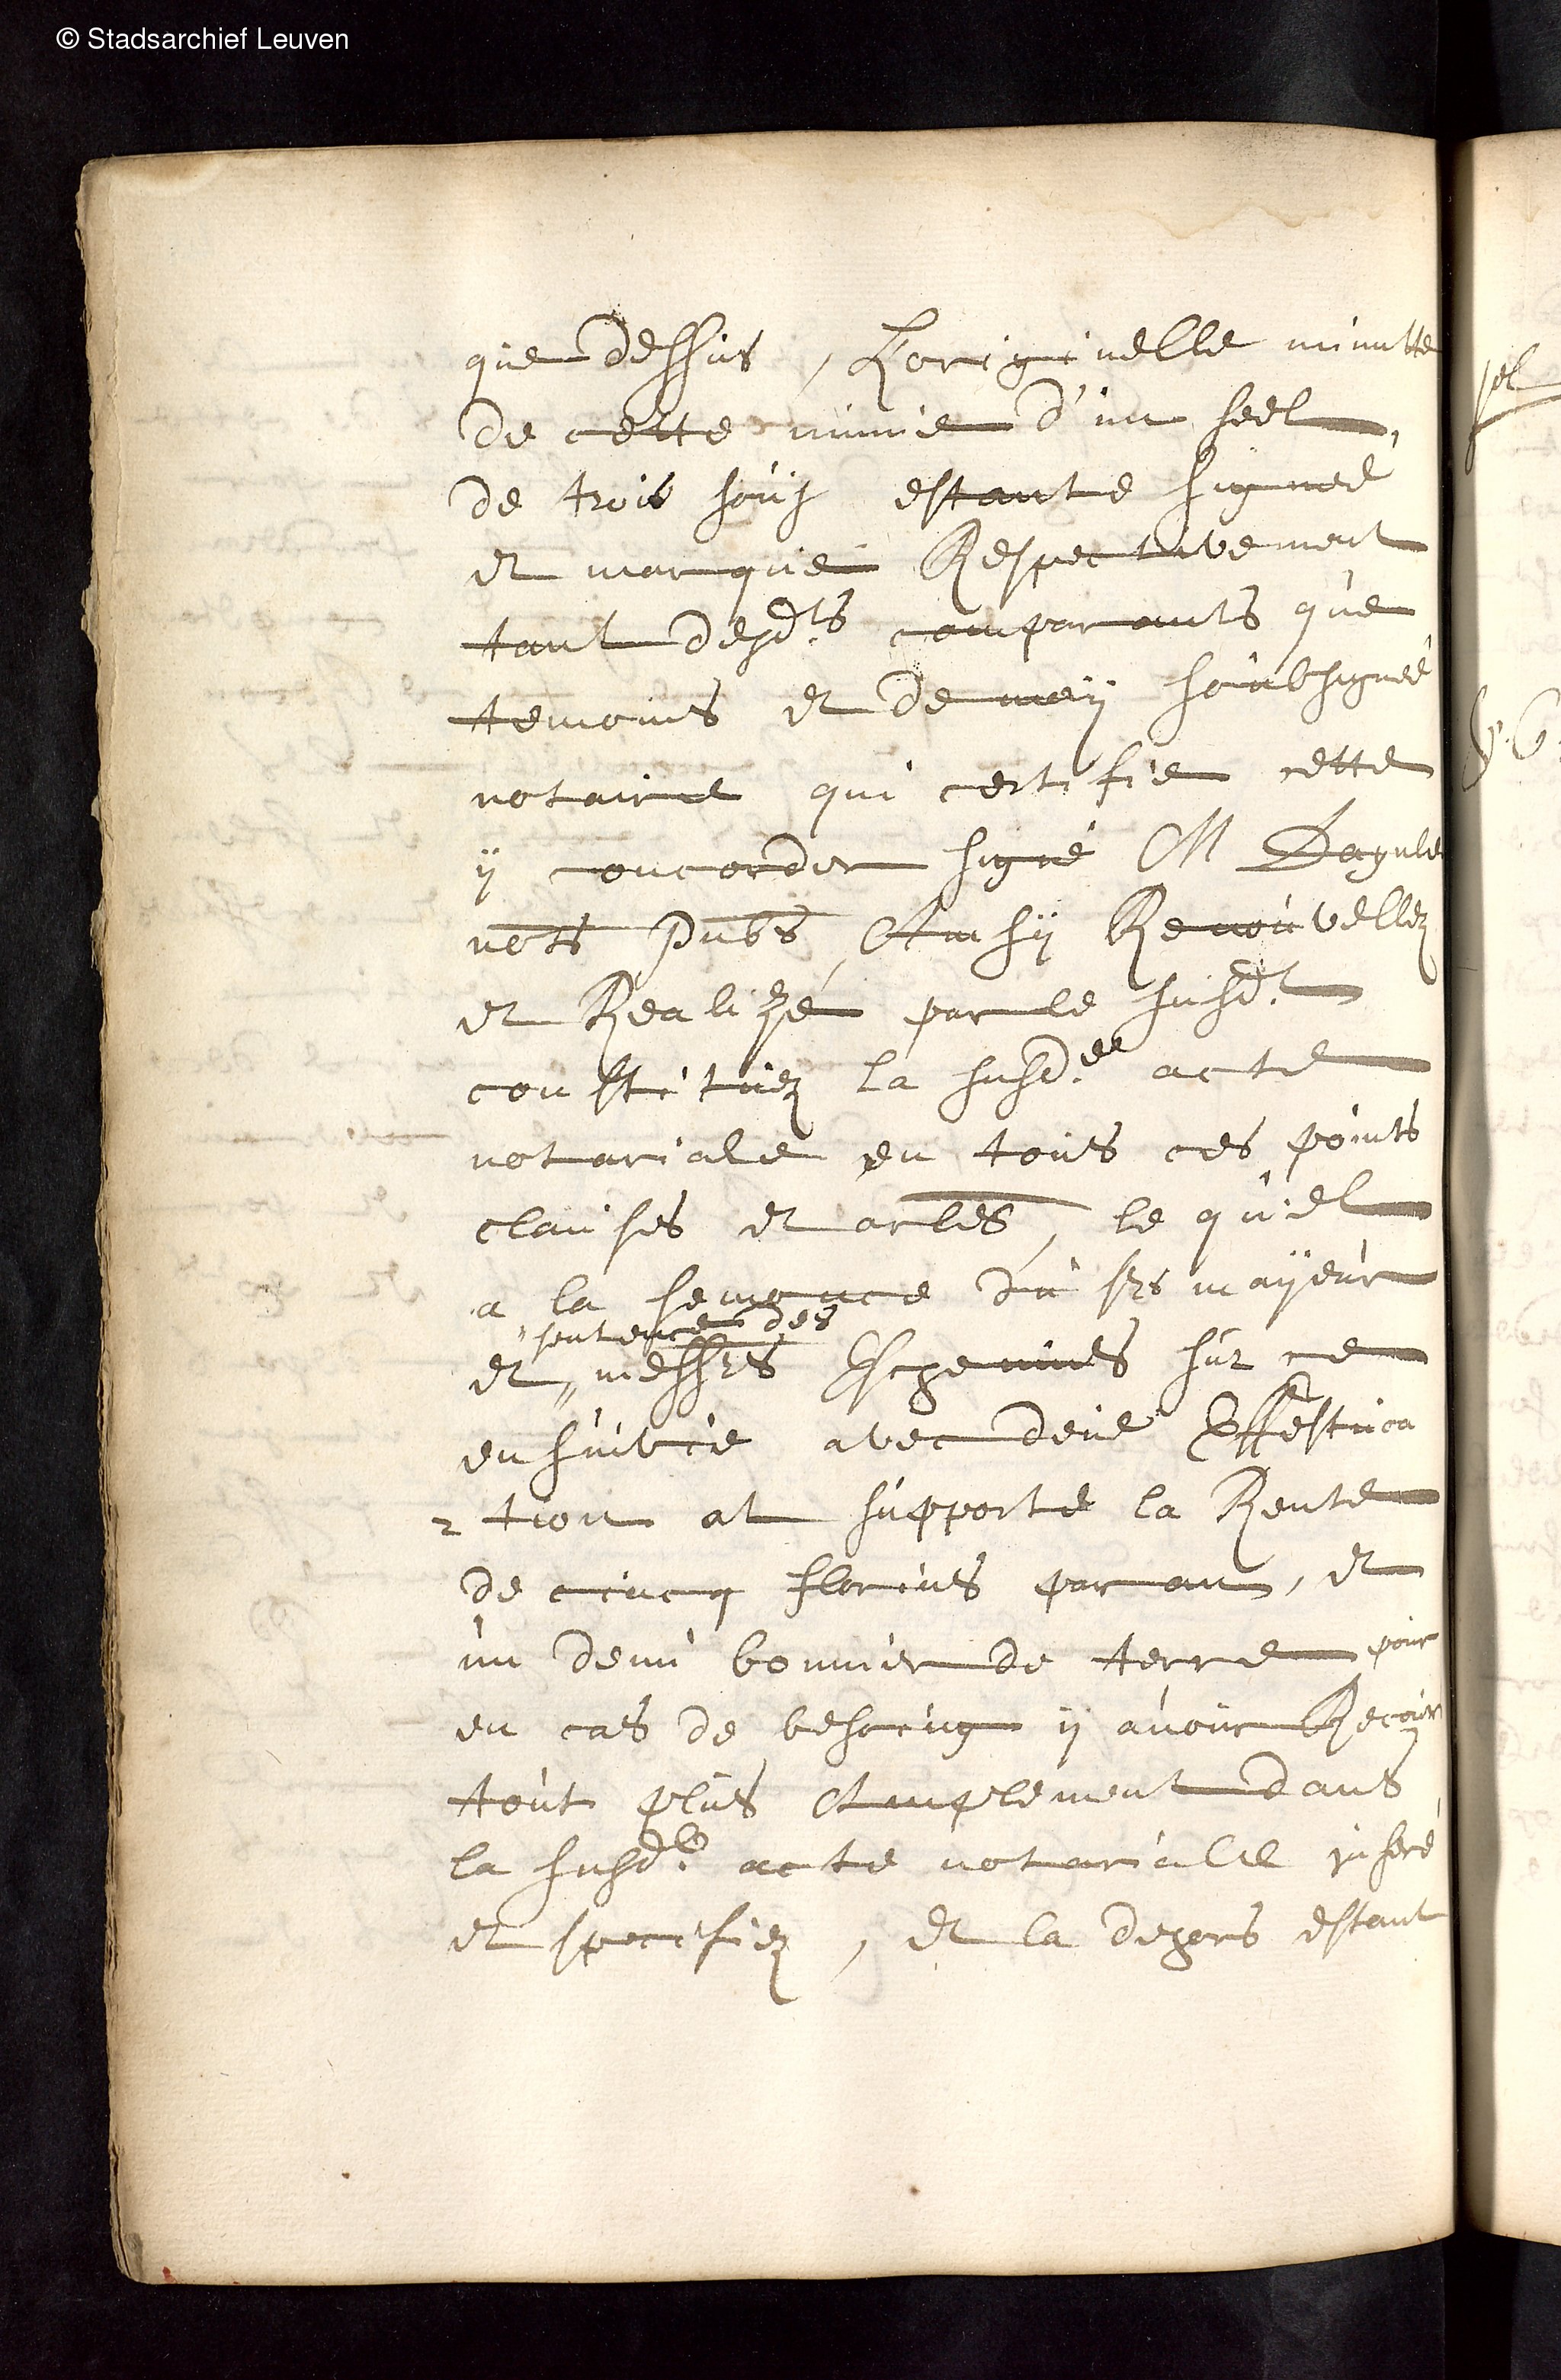 © Stadsarchief Leuven
que dessus, L'originelle minutte
de cette munie d'un seel,
de trois souz estante signeé
et marquéi Respectivement
tant desd.ts comparants que
temoins et de moÿ soubsigneé
notaire qui certifie cette
ÿ concorder signé M
nots pubs, Ainsÿ Renouvellez
et Realizé par le susd.t
constituéz la susd.ee acte
notariale en tous ces points
clauses et arles, le quel
a la semonce du srs maÿeur
et „ messrs Escheuines sur ce
„ sentence des
ensuivie avec deue Effestuca
2 tion at supporté la Rente
de cincq florins par an, et
un demi bonnier de terre pour
en cas de besoing ÿ auoir Recour
tout plus Amplement dans
la susd.e acte notarialle inseré
et specifiez, et la depens estant